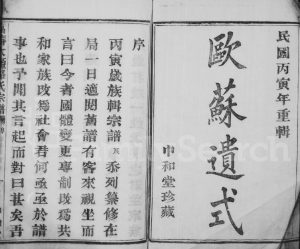 民國丙寅年重輯
歐蘇遺式
中和堂珍藏
序
丙寅歲族輯宗譜 忝列纂修在
局一日適閱舊譜有客來視坐而
言曰今者國體變更專制改爲共
和家族改爲社會君何亟亟於譜
事也予聞其言起而對曰甚矣吾